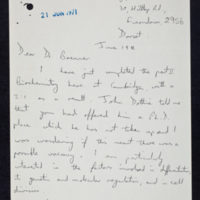 21 JUN 1978
Dorset
June 19th
Dear Dr Brenner
I have just completed the part II
Biochemistry here at Cambridge, with a
2.1 as a result. John told me
that you had offered him a P.h.D.
place which he has not taken up and I
was wondering if this meant there was a
possible vacancy. I am particularly
interested in the factors involved in differentiation,
genetic and molecular regulation, and in cell
division